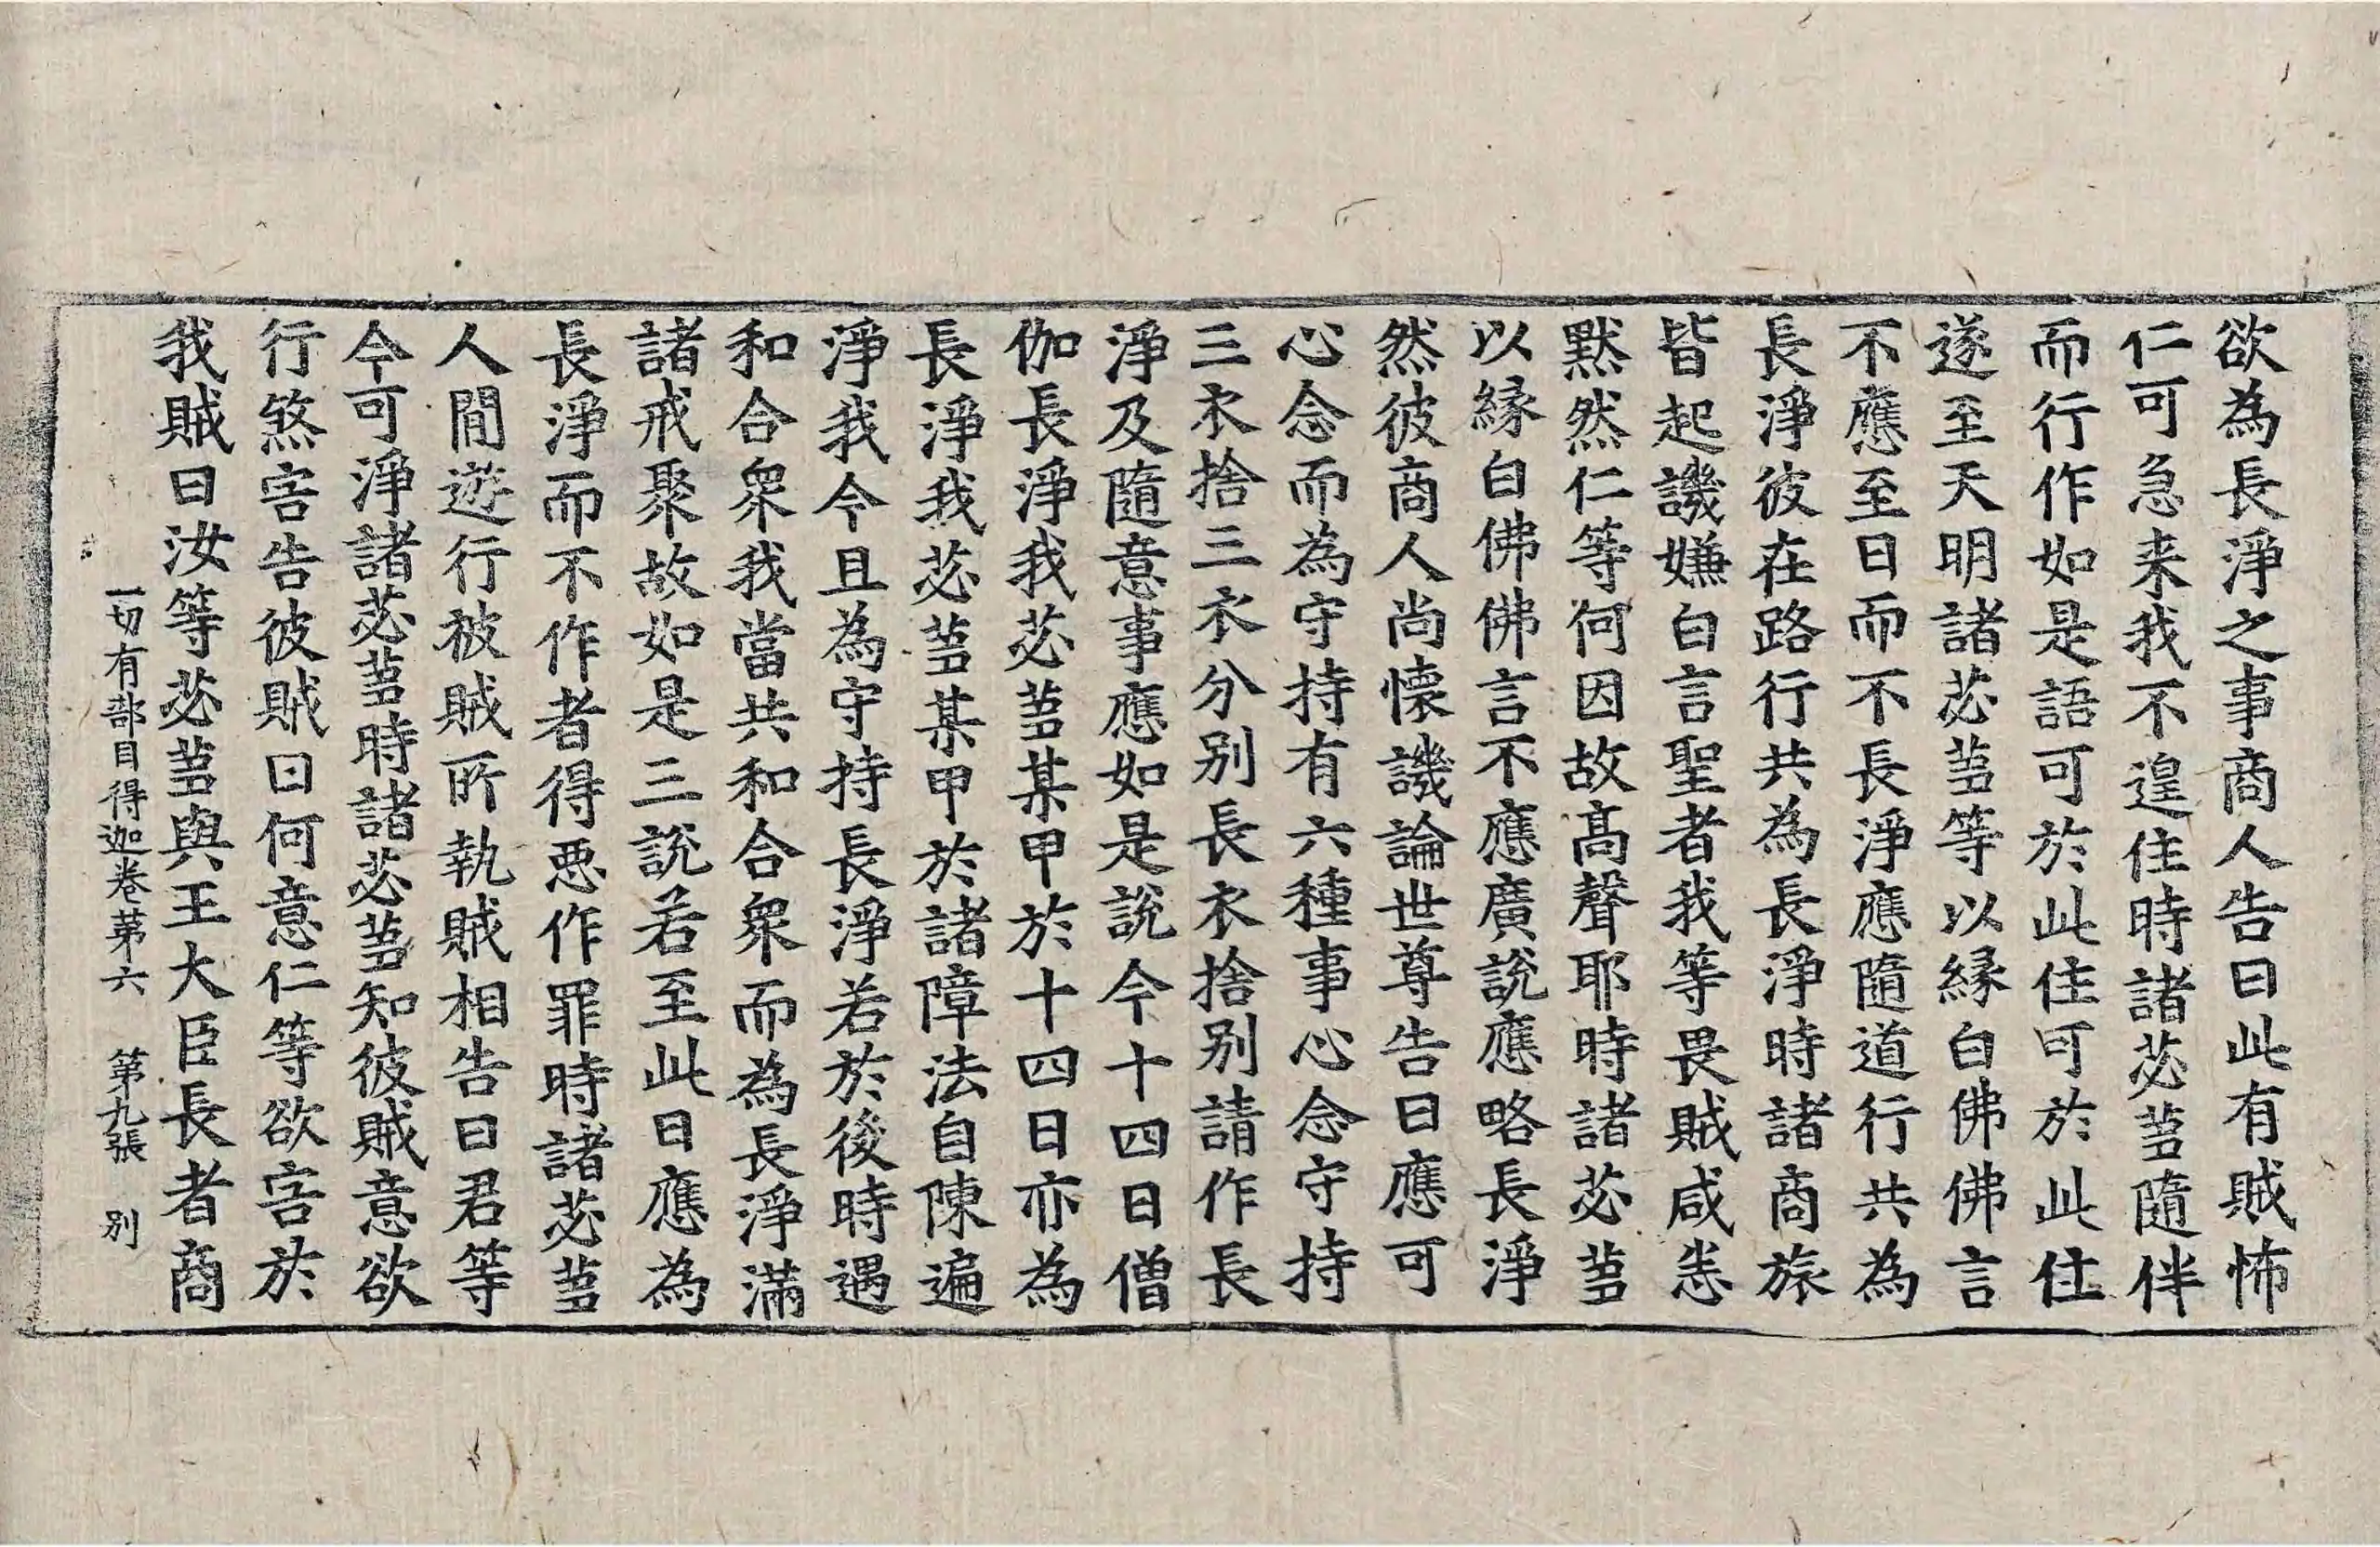 欲為長淨之事商人告曰此有賊怖
仁可急来我不遑住時諸苾蒭隨伴
而行作如是語可於此住可於此住
遂至天明諸苾蒭等以縁白佛佛言
不應至日而不長淨應隨道行共為
長淨彼在路行共為長淨時諸商旅
皆起譏嫌白言聖者我等畏賊咸悉
默然仁等何因故髙聲耶時諸苾蒭
以縁白佛佛言不應廣說應略長淨
然彼商人尚懐譏論世尊告曰應可
心念而為守持有六種事心念守持
三衣捨三衣分别長衣捨别請作長
淨及隨意事應如是說今十四日僧
伽長淨我苾蒭某甲於十四日亦為
長淨我苾蒭某甲於諸障法自陳遍
淨我今且為守持長淨若於後時遇
和合衆我當共和合衆而為長淨滿
諸戒聚故如是三說若至此日應為
長淨而不作者得悪作罪時諸苾蒭
人間遊行被賊所執賊相告曰君等
今可淨諸苾蒭時諸苾蒭知彼賊意欲
行煞害告彼賊曰何意仁等欲害於
我賊曰汝等苾蒭與王大臣長者商
一切有部目得迦卷苐六　第九張　别